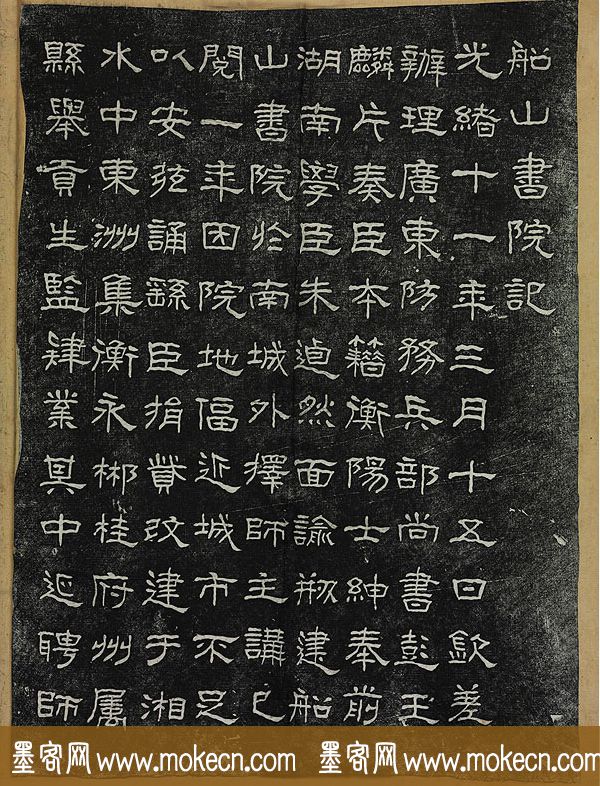 船山書院記
光緒十一年三月十五日欽差
辦理廣東防務兵部尚書彭玉
麟片奏臣本籍衡陽士紳奉前
湖南學臣朱逌然面諭剏建船
山書院於南城外擇師主講已
閱一年因院地偪近城市不足
以安弦誦繇臣捐貲改建于湘
水中東洲集衡永郴桂府州屬
縣舉貢生監肄業其中延聘師
墨客网 www.mokecn.com 墨客网 www.mokecn.com